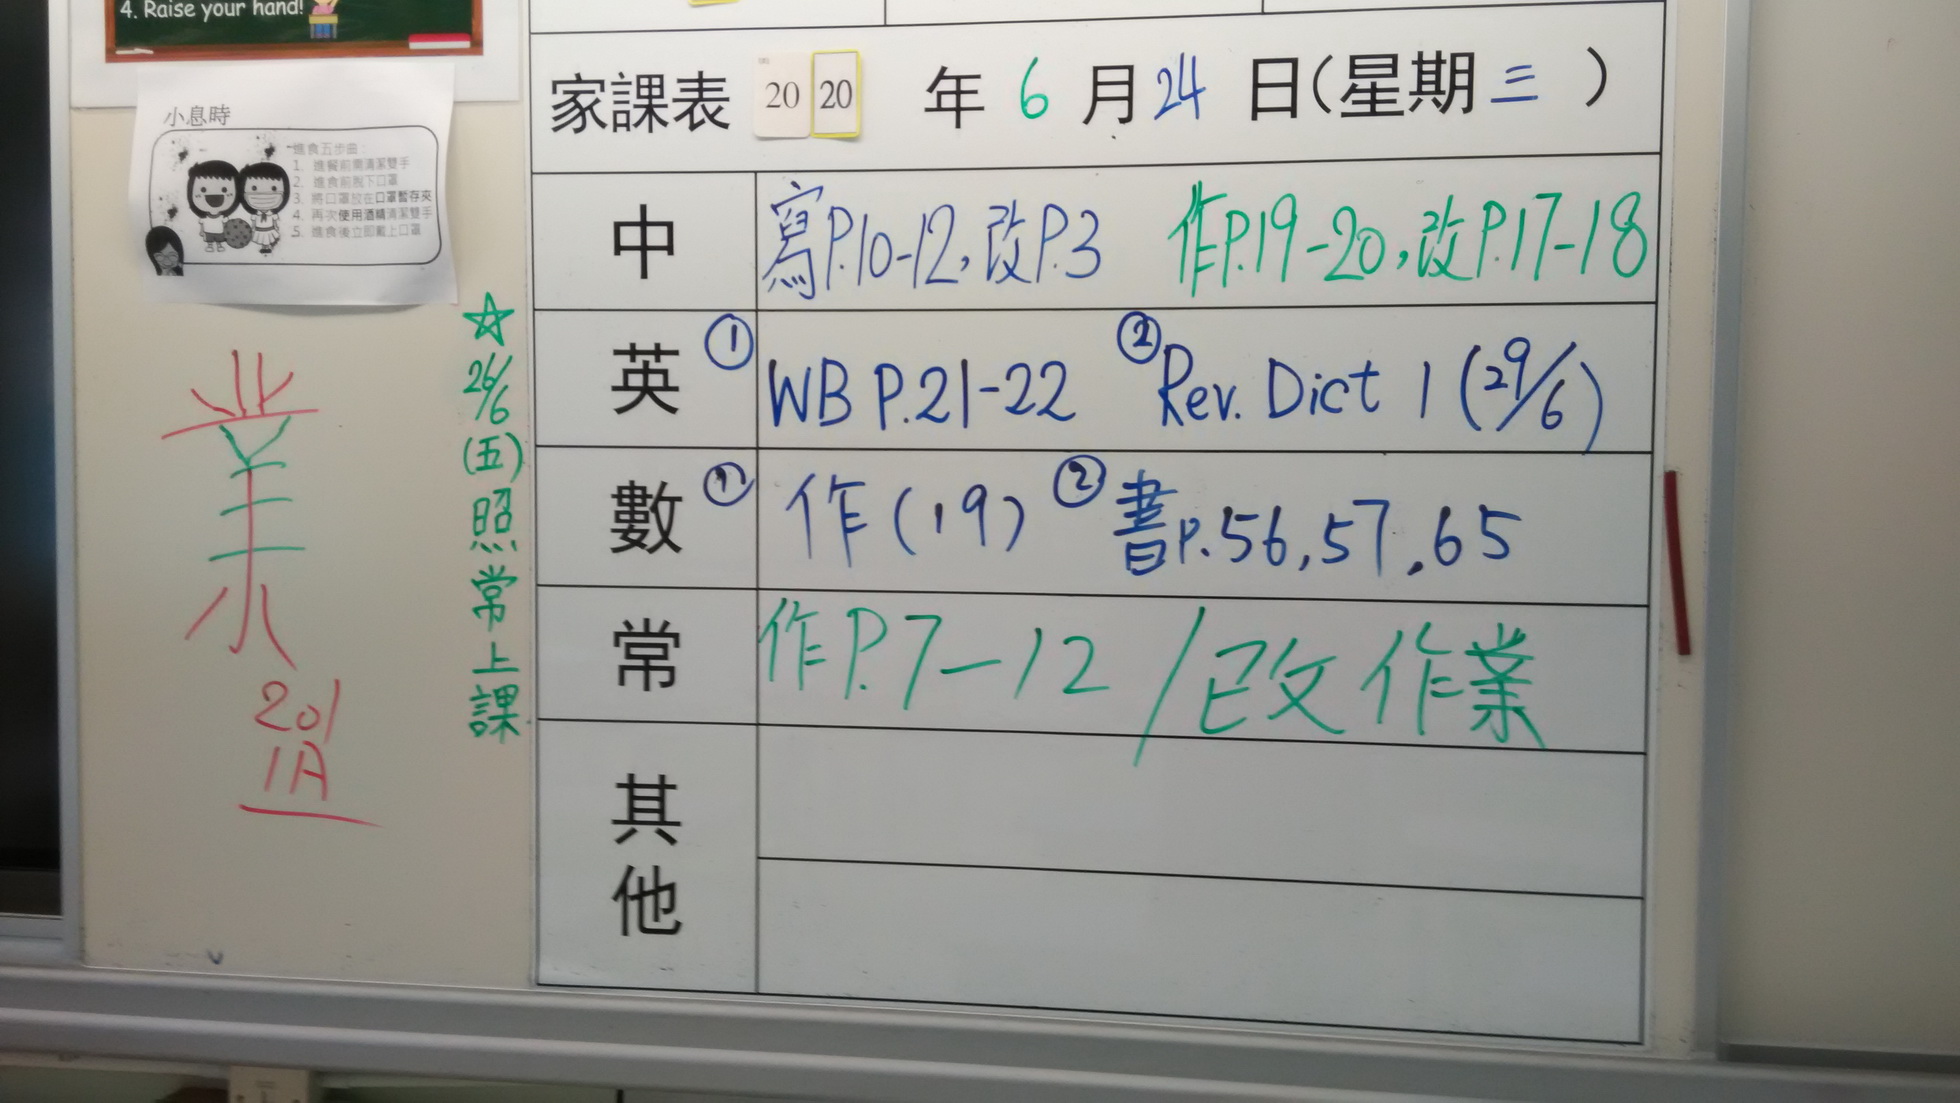 4. Raise your hand!
小息時
進食五步曲：
1. 進餐前需清潔雙手
2. 進食前脫下口罩
3. 將口罩放在口罩暫存夾
4. 再次使用酒精清潔雙手
5. 進食後立即戴上口罩
業
201
1A
☆26/6(五)照常上課
家課表 20 20 年 6 月 24 日(星期三)
中 寫P.10-12,改P.3 作P.19-20,改P.17-18
英 ① WB P.21-22 ② Rev. Dict 1 (29/6)
數 ① 作(19) ② 書P.56,57,65
常 作P.7-12/改作業
其他